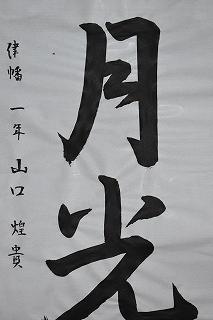 月光
津幡 一年 山口 煌貴